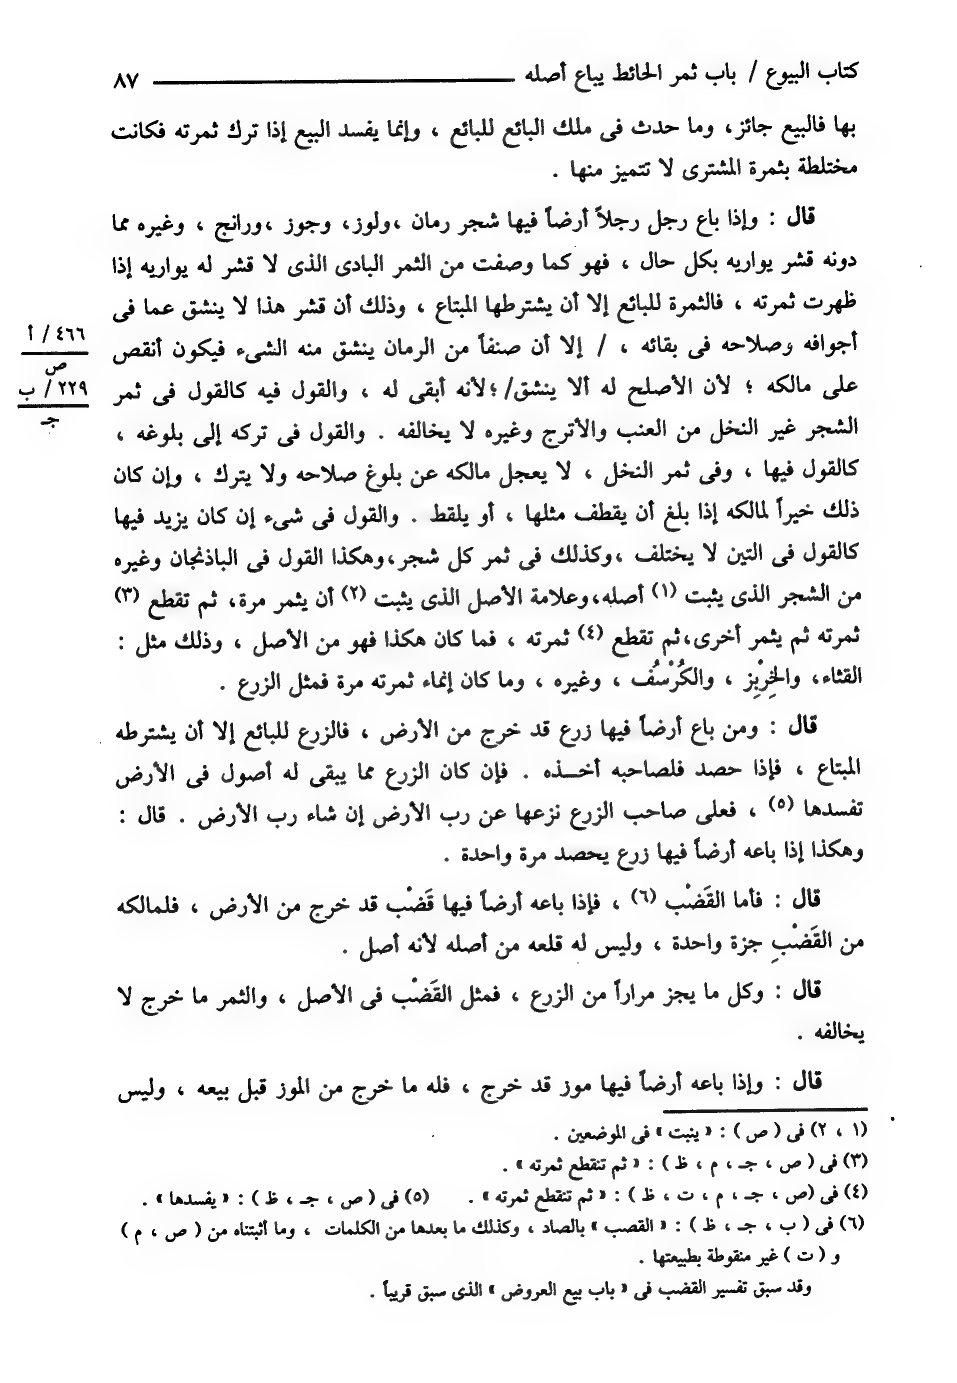 كتاب البيوع / باب ثمر الحائط يباع أصله ٨٧
بها فالبيع جائز، وما حدث فى ملك البائع للبائع ، وإنما يفسد البيع إذا ترك ثمرته فكانت
مختلطة بثمرة المشترى لا تتميز منها .
قال : وإذا باع رجل رجلاً أرضاً فيها شجر رمان ،ولوز، وجوز ،ورانج ، وغيره مما
دونه قشر يواريه بكل حال ، فهو كما وصفت من الثمر البادى الذى لا قشر له يواريه إذا
ظهرت ثمرته ، فالثمرة للبائع إلا أن يشترطها المبتاع ، وذلك أن قشر هذا لا ينشق عما فى
أجوافه وصلاحه فى بقائه ، / إلا أن صنفاً من الرمان ينشق منه الشىء فيكون أنقص
٤٦٦/ أ
ص
على مالكه ؛ لأن الأصلح له ألا ينشق/؛لأنه أبقى له ، والقول فيه كالقول فى ثمر
٢٢٩/ ب
جـ
الشجر غير النخل من العنب والأترج وغيره لا يخالفه . والقول فى تركه إلى بلوغه ،
كالقول فيها ، وفى ثمر النخل ، لا يعجل مالكه عن بلوغ صلاحه ولا يترك ، وإن كان
ذلك خيراً لمالكه إذا بلغ أن يقطف مثلها ، أو يلقط . والقول فى شىء إن كان يزيد فيها
كالقول فى التين لا يختلف ،وكذلك فى ثمر كل شجر،وهكذا القول فى الباذنجان وغيره
من الشجر الذى يثبت (١) أصله،وعلامة الأصل الذى يثبت (٢) أن يثمر مرة، ثم تقطع (٣)
ثمرته ثم يثمر أخرى،ثم تقطع (٤) ثمرته ، فما كان هكذا فهو من الأصل ، وذلك مثل :
القثاء، والخِرْبِز ، والكُرْسُف ، وغيره ، وما كان إنماء ثمرته مرة فمثل الزرع .
قال : ومن باع أرضاً فيها زرع قد خرج من الأرض ، فالزرع للبائع إلا أن يشترطه
المبتاع ، فإذا حصد فلصاحبه أخــذه . فإن كان الزرع مما يبقى له أصول فى الأرض
تفسدها (٥) ، فعلى صاحب الزرع نزعها عن رب الأرض إن شاء رب الأرض . قال :
وهكذا إذا باعه أرضاً فيها زرع يحصد مرة واحدة .
قال : فأما القَضْب (٦) ، فإذا باعه أرضاً فيها قَضْب قد خرج من الأرض ، فلمالكه
من القَضْبِ جزة واحدة ، وليس له قلعه من أصله لأنه أصل .
قال : وكل ما يجز مراراً من الزرع ، فمثل القَضْب فى الأصل ، والثمر ما خرج لا
يخالفه .
قال : وإذا باعه أرضاً فيها موز قد خرج ، فله ما خرج من الموز قبل بيعه ، وليس
(١ ، ٢) فى ( ص ) : « ينبت » فى الموضعين .
(٣) فى ( ص ، جـ ، م ، ظ ) : « ثم تنقطع ثمرته » .
(٤) فى (ص ، جـ ، م ، ت ، ظ ) : « ثم تنقطع ثمرته » . (٥) فى ( ص ، جـ ، ظ ) : « يفسدها » .
(٦) فى ( ب ، جـ ، ظ ) : « القصب » بالصاد ، وكذلك ما بعدها من الكلمات ، وما أثبتناه من ( ص ، م )
و ( ت ) غير منقوطة بطبيعتها .
وقد سبق تفسير القضب فى « باب بيع العروض » الذى سبق قريباً .